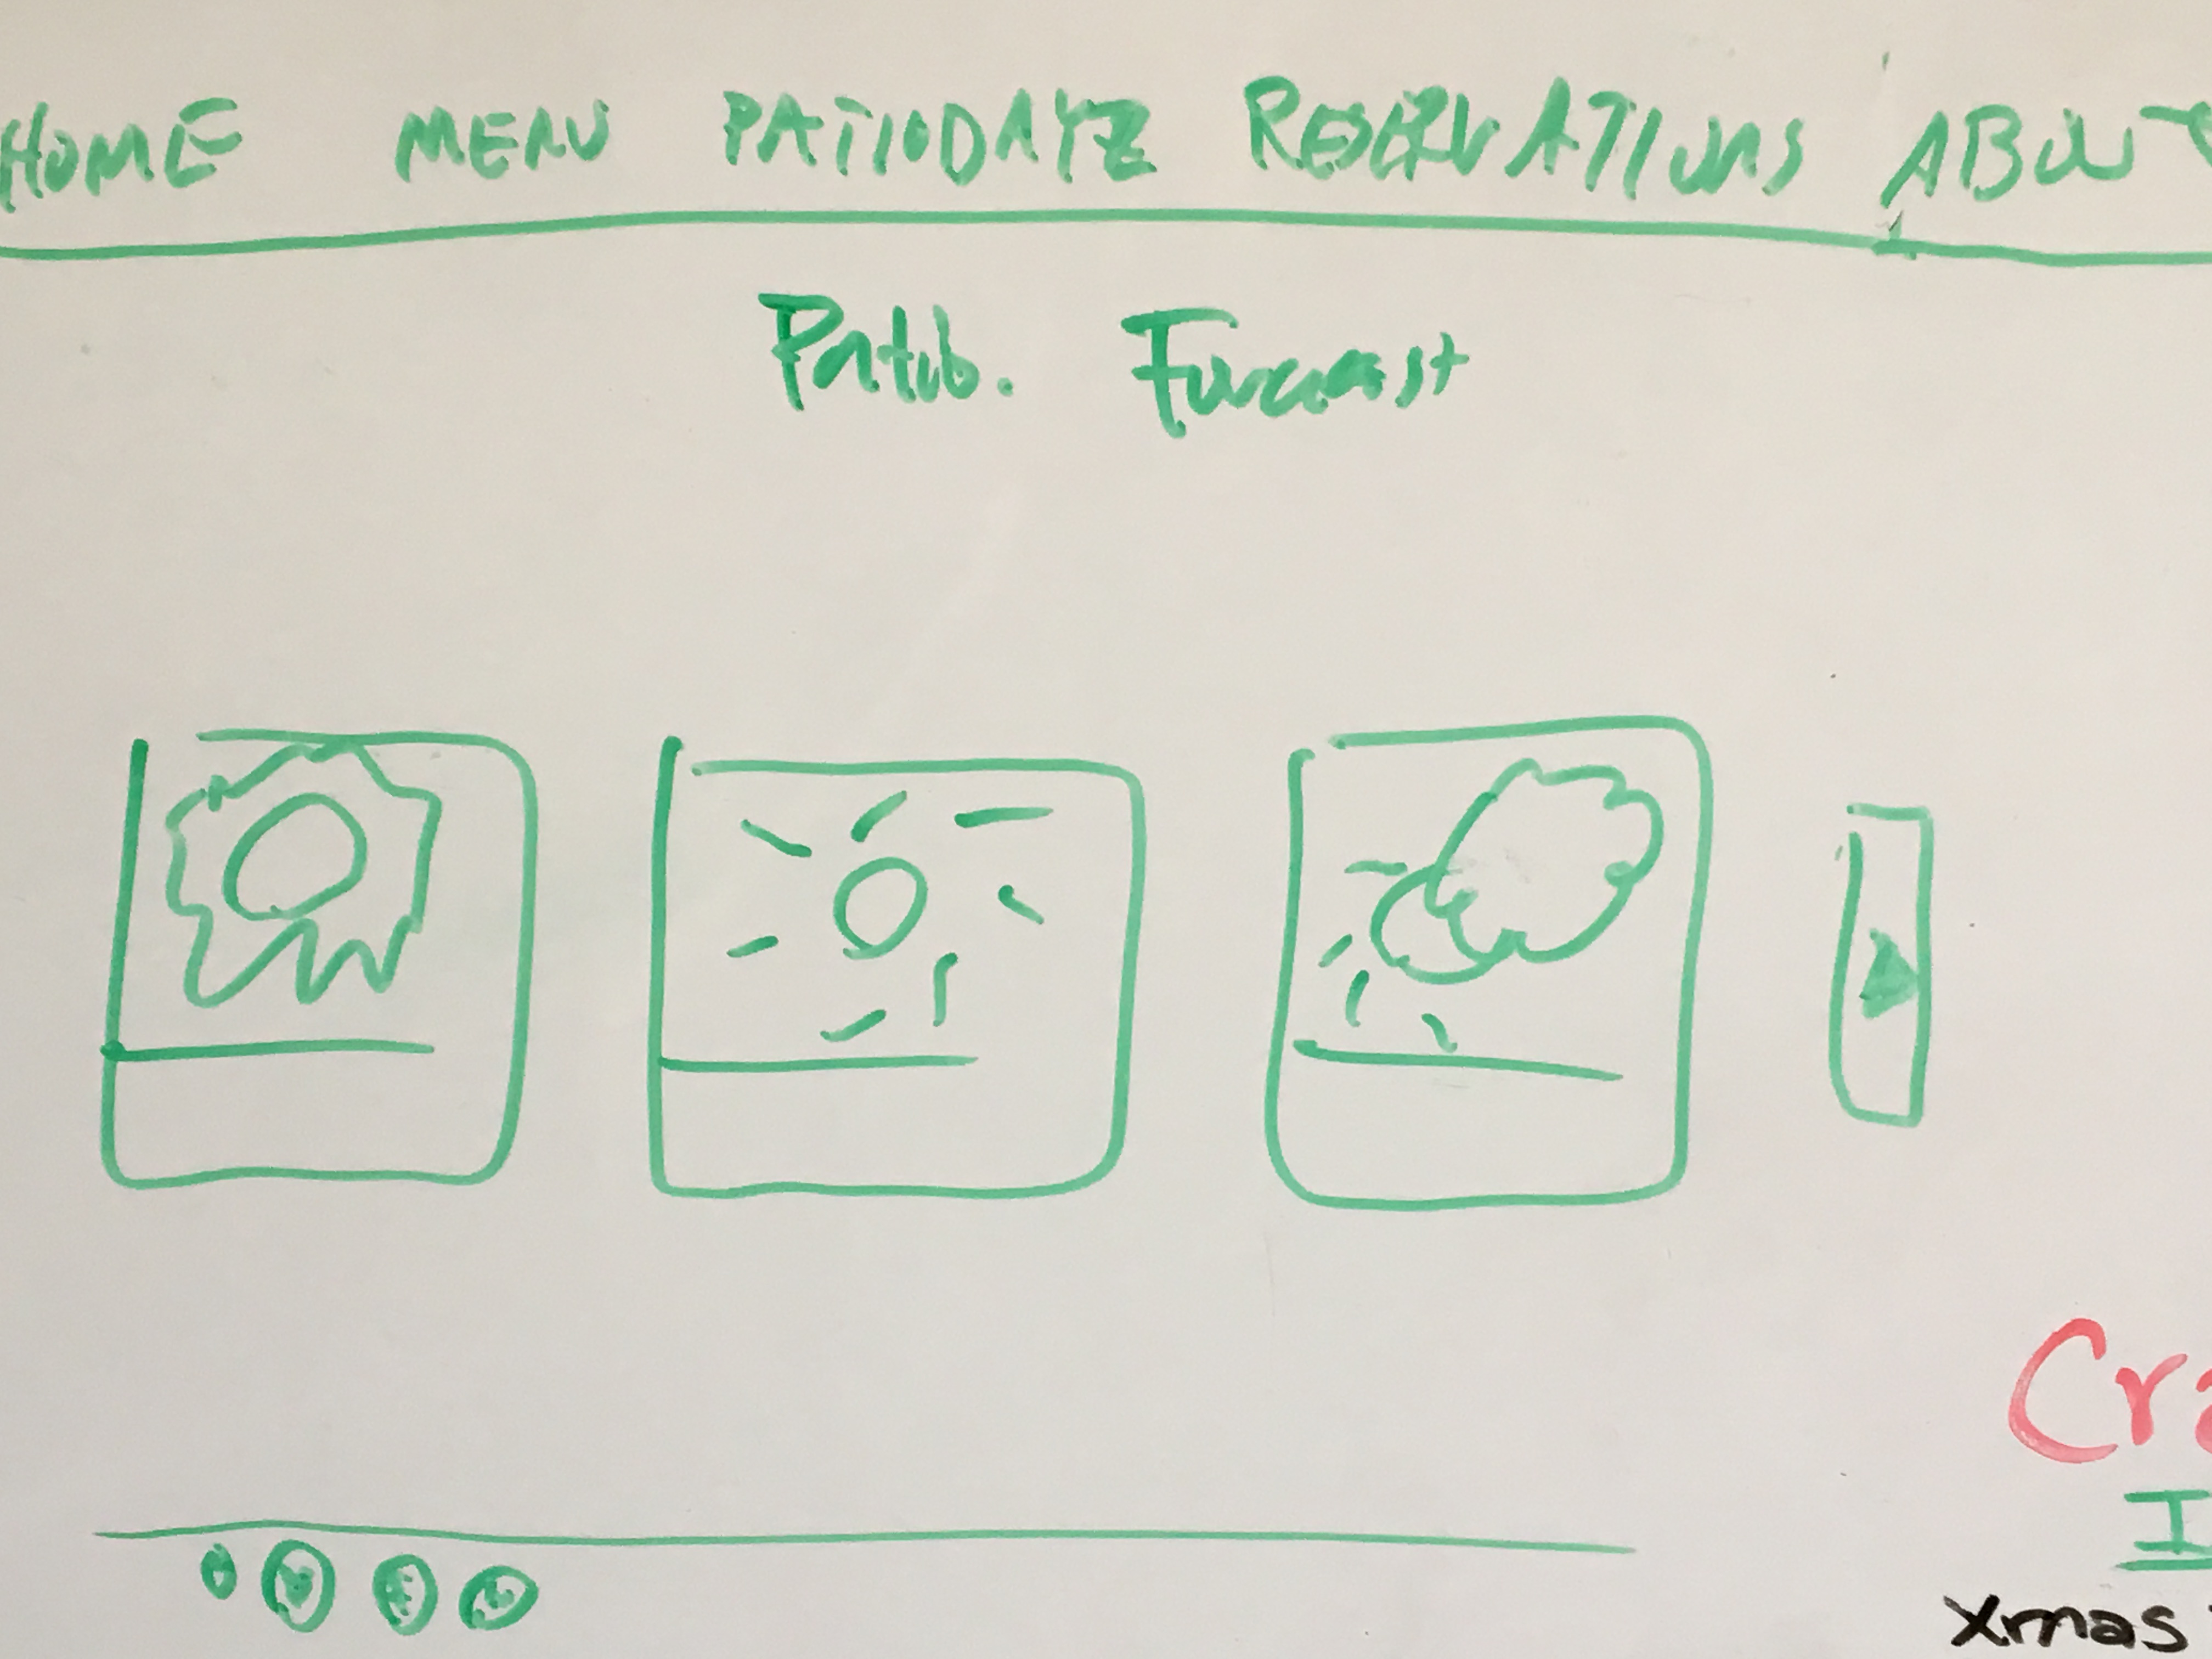 HOME MENU PATIODAYZ RESERVATIONS ABOUT
Patio. Forecast
Cra
I
xmas